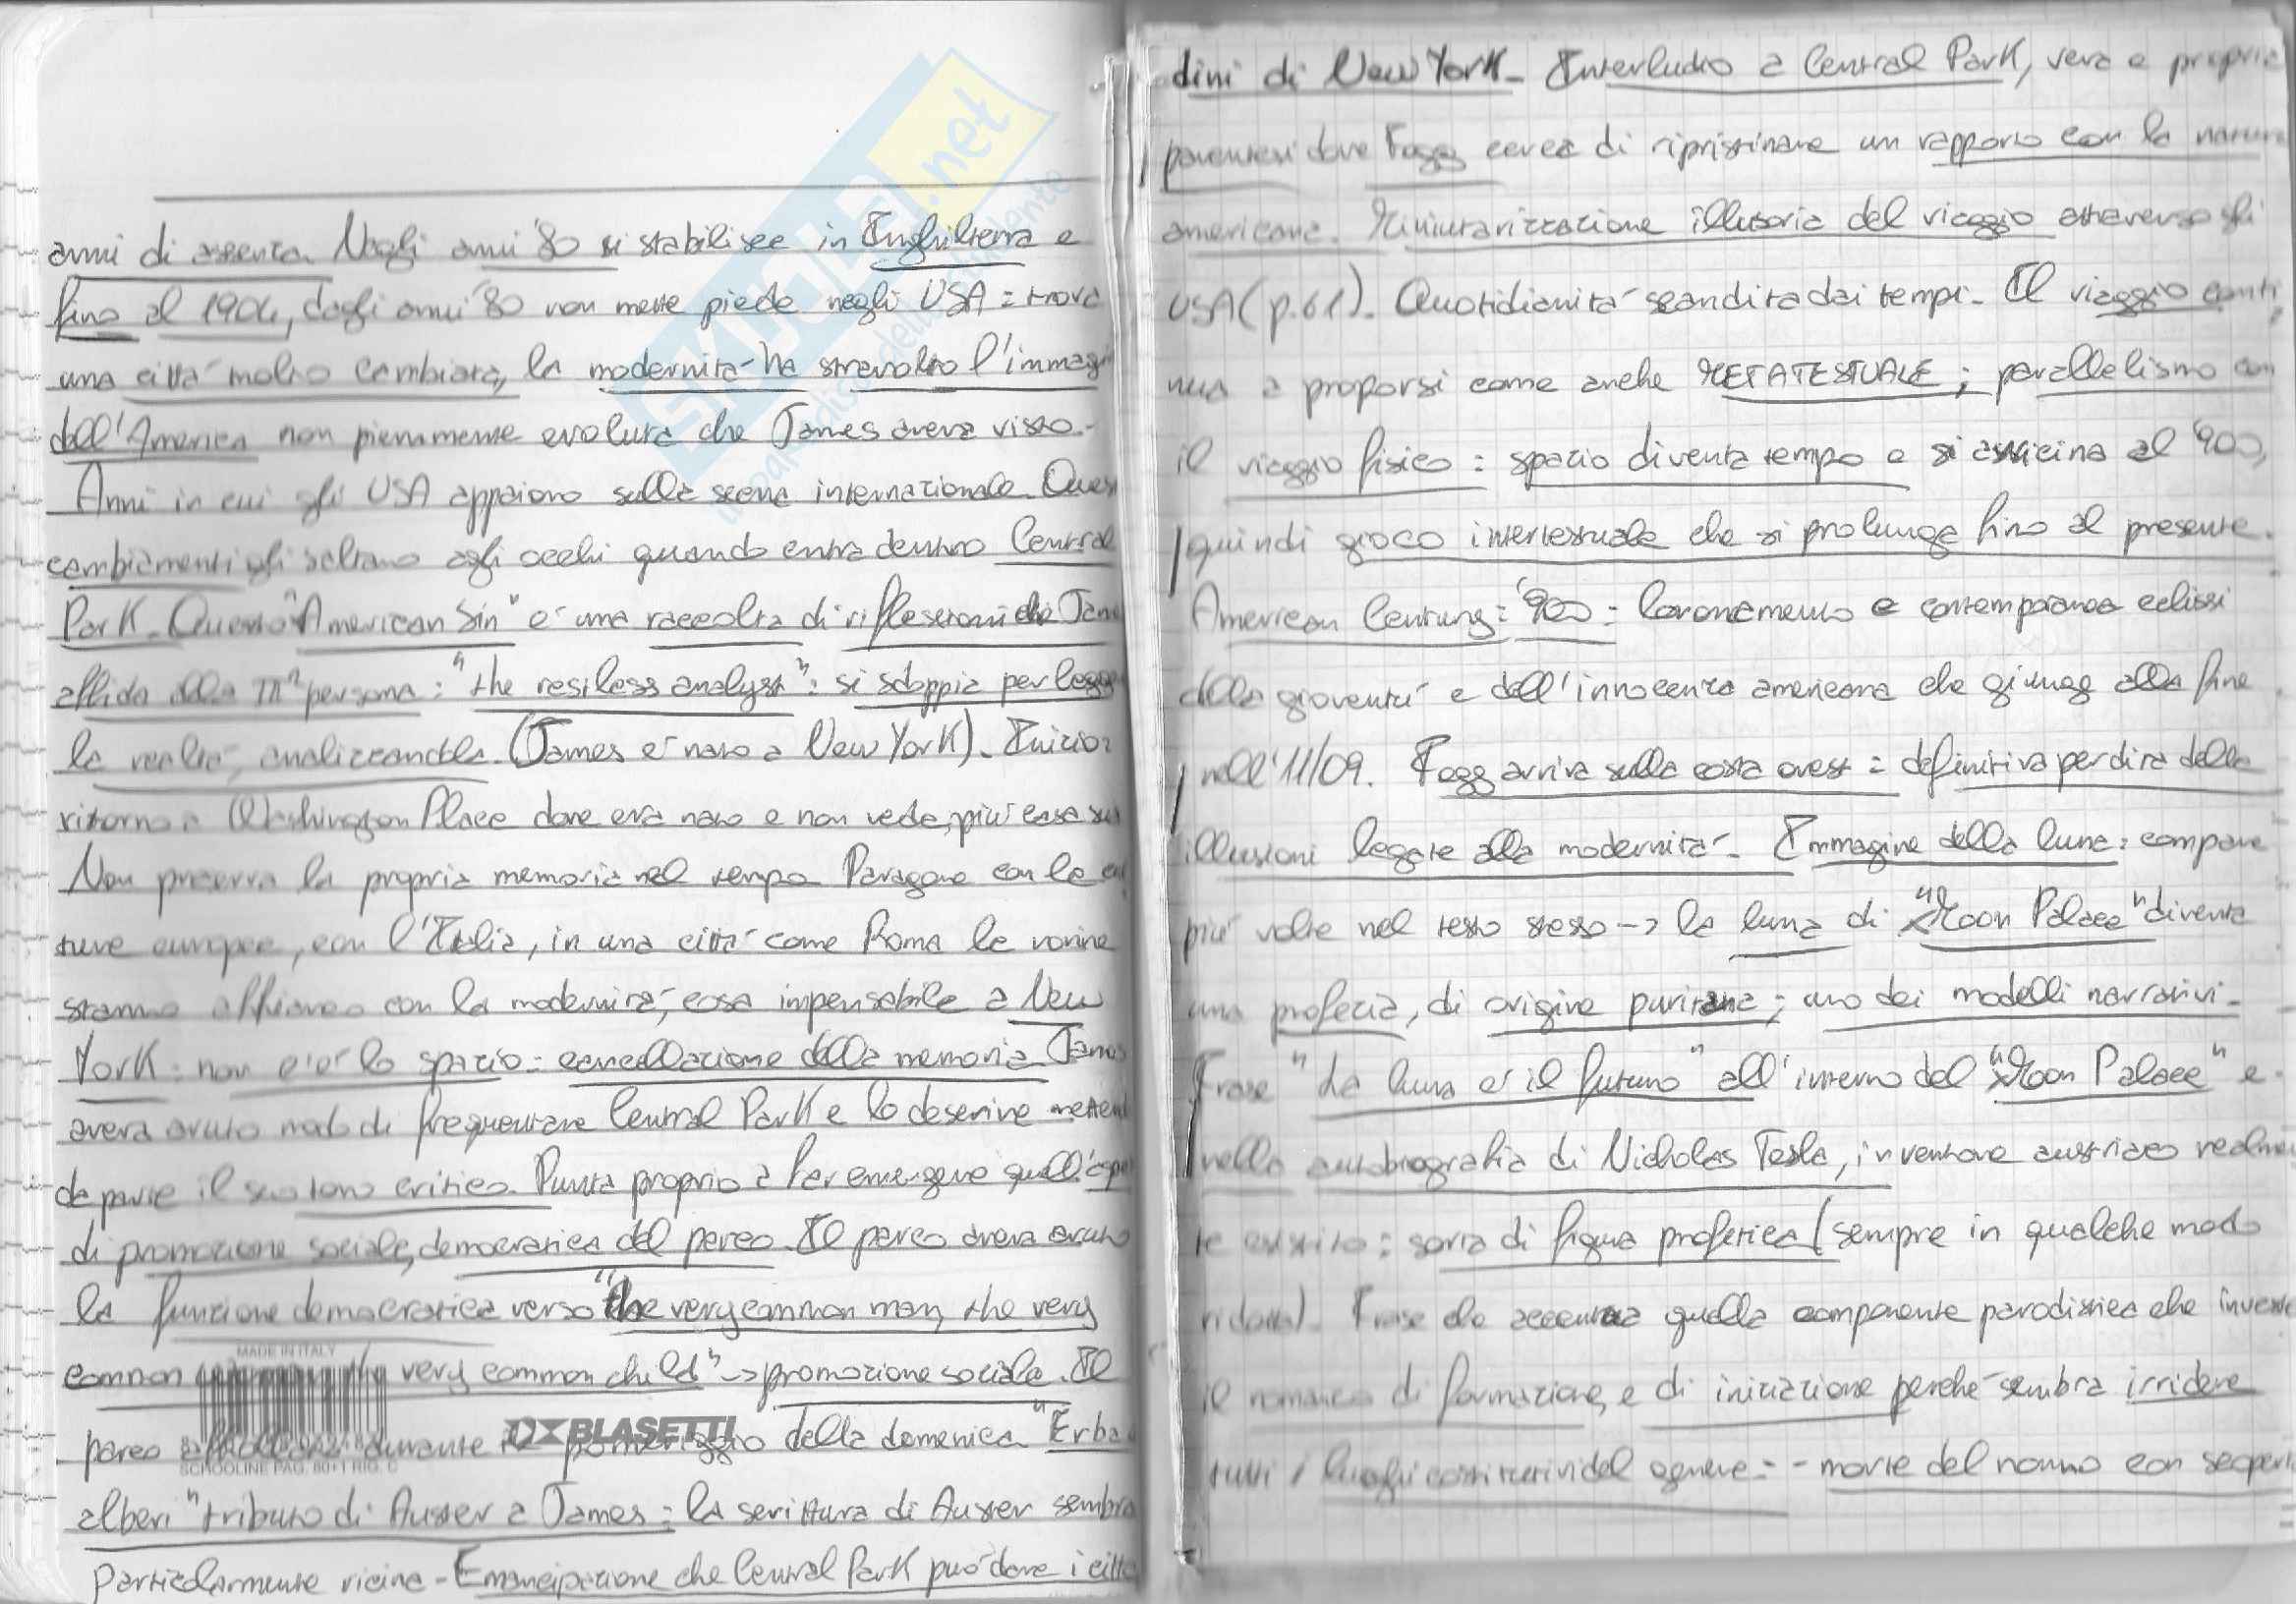 anni di assenza. Negli anni '80 si stabilisce in Inghilterra e
fino al 1904, dagli anni '80 non mette piede negli USA = trova
una città molto cambiata, la modernità ha stravolto l'immagi
dell'America non pienamente evoluta che James aveva visto.-
Anni in cui gli USA appaiono sulla scena internazionale. Ques
cambiamenti gli saltano agli occhi quando entra dentro Central
Park. Questo "American Sin" e' una raccolta di riflessioni che Jame
affida alla IIIª persona: "the restless analyst": si sdoppia per legge
la realtà, analizzandola. (James e' nato a New York). Inizio:
ritorno a Washington Place dove era nato e non vede più casa sua
Non preserva la propria memoria nel tempo. Paragone con le cul
ture europee, con l'Italia, in una città come Roma le rovine
stanno affianco con la modernità, cosa impensabile a New
York: non c'e' lo spazio = cancellazione della memoria. James
aveva avuto modo di frequentare Central Park e lo descrive metten
da parte il suo tono critico. Punta proprio a far emergere quell'aspe
di promozione sociale, democratica del parco. Il parco aveva avuto
la funzione democratica verso "the very common man, the very
common very common child" -> promozione sociale. Il
MADE IN ITALY
BLASETTI
parco durante il pomeriggio della domenica. "Erba
SCHOOLINE PAG. 80+1 RIG. C
alberi" tributo di Auster a James = la scrittura di Auster sembra
particolarmente vicina - Emancipazione che Central Park può dare i citta
dini di New York - Interludio a Central Park, vera e propria
parentesi dove Fogg cerca di ripristinare un rapporto con la natura
americana. Miniaturizzazione illusoria del viaggio attraverso gli
USA (p.61). Quotidianità scandita dai tempi - Il viaggio conti
nua a proporsi come anche METATESTUALE; parallelismo con
il viaggio fisico: spazio diventa tempo e si avvicina al '900,
quindi gioco intertestuale che si prolunga fino al presente.
American Century = '900 = Coronamento e contemporanea eclissi
della gioventù e dell'innocenza americana che giunge alla fine
nell'11/09. Fogg arriva sulla costa ovest = definitiva perdita delle
illusioni legate alla modernità - Immagine della luna: compare
più volte nel testo stesso -> la luna di "Moon Palace" diventa
una profezia, di origine puritana; uno dei modelli narrativi-
Frase "La luna e' il futuro" all'interno del "Moon Palace" e
nella autobiografia di Nicholas Tesla, inventore austriaco realmen
te esistito: sorta di figura profetica (sempre in qualche modo
ridotta). Frase che accentua quella componente parodistica che investe
il romanzo di formazione, e di iniziazione perché sembra irridere
tutti i luoghi costitutivi del genere: - morte del nonno con scoperta
skuola.net
il paradiso dello studente